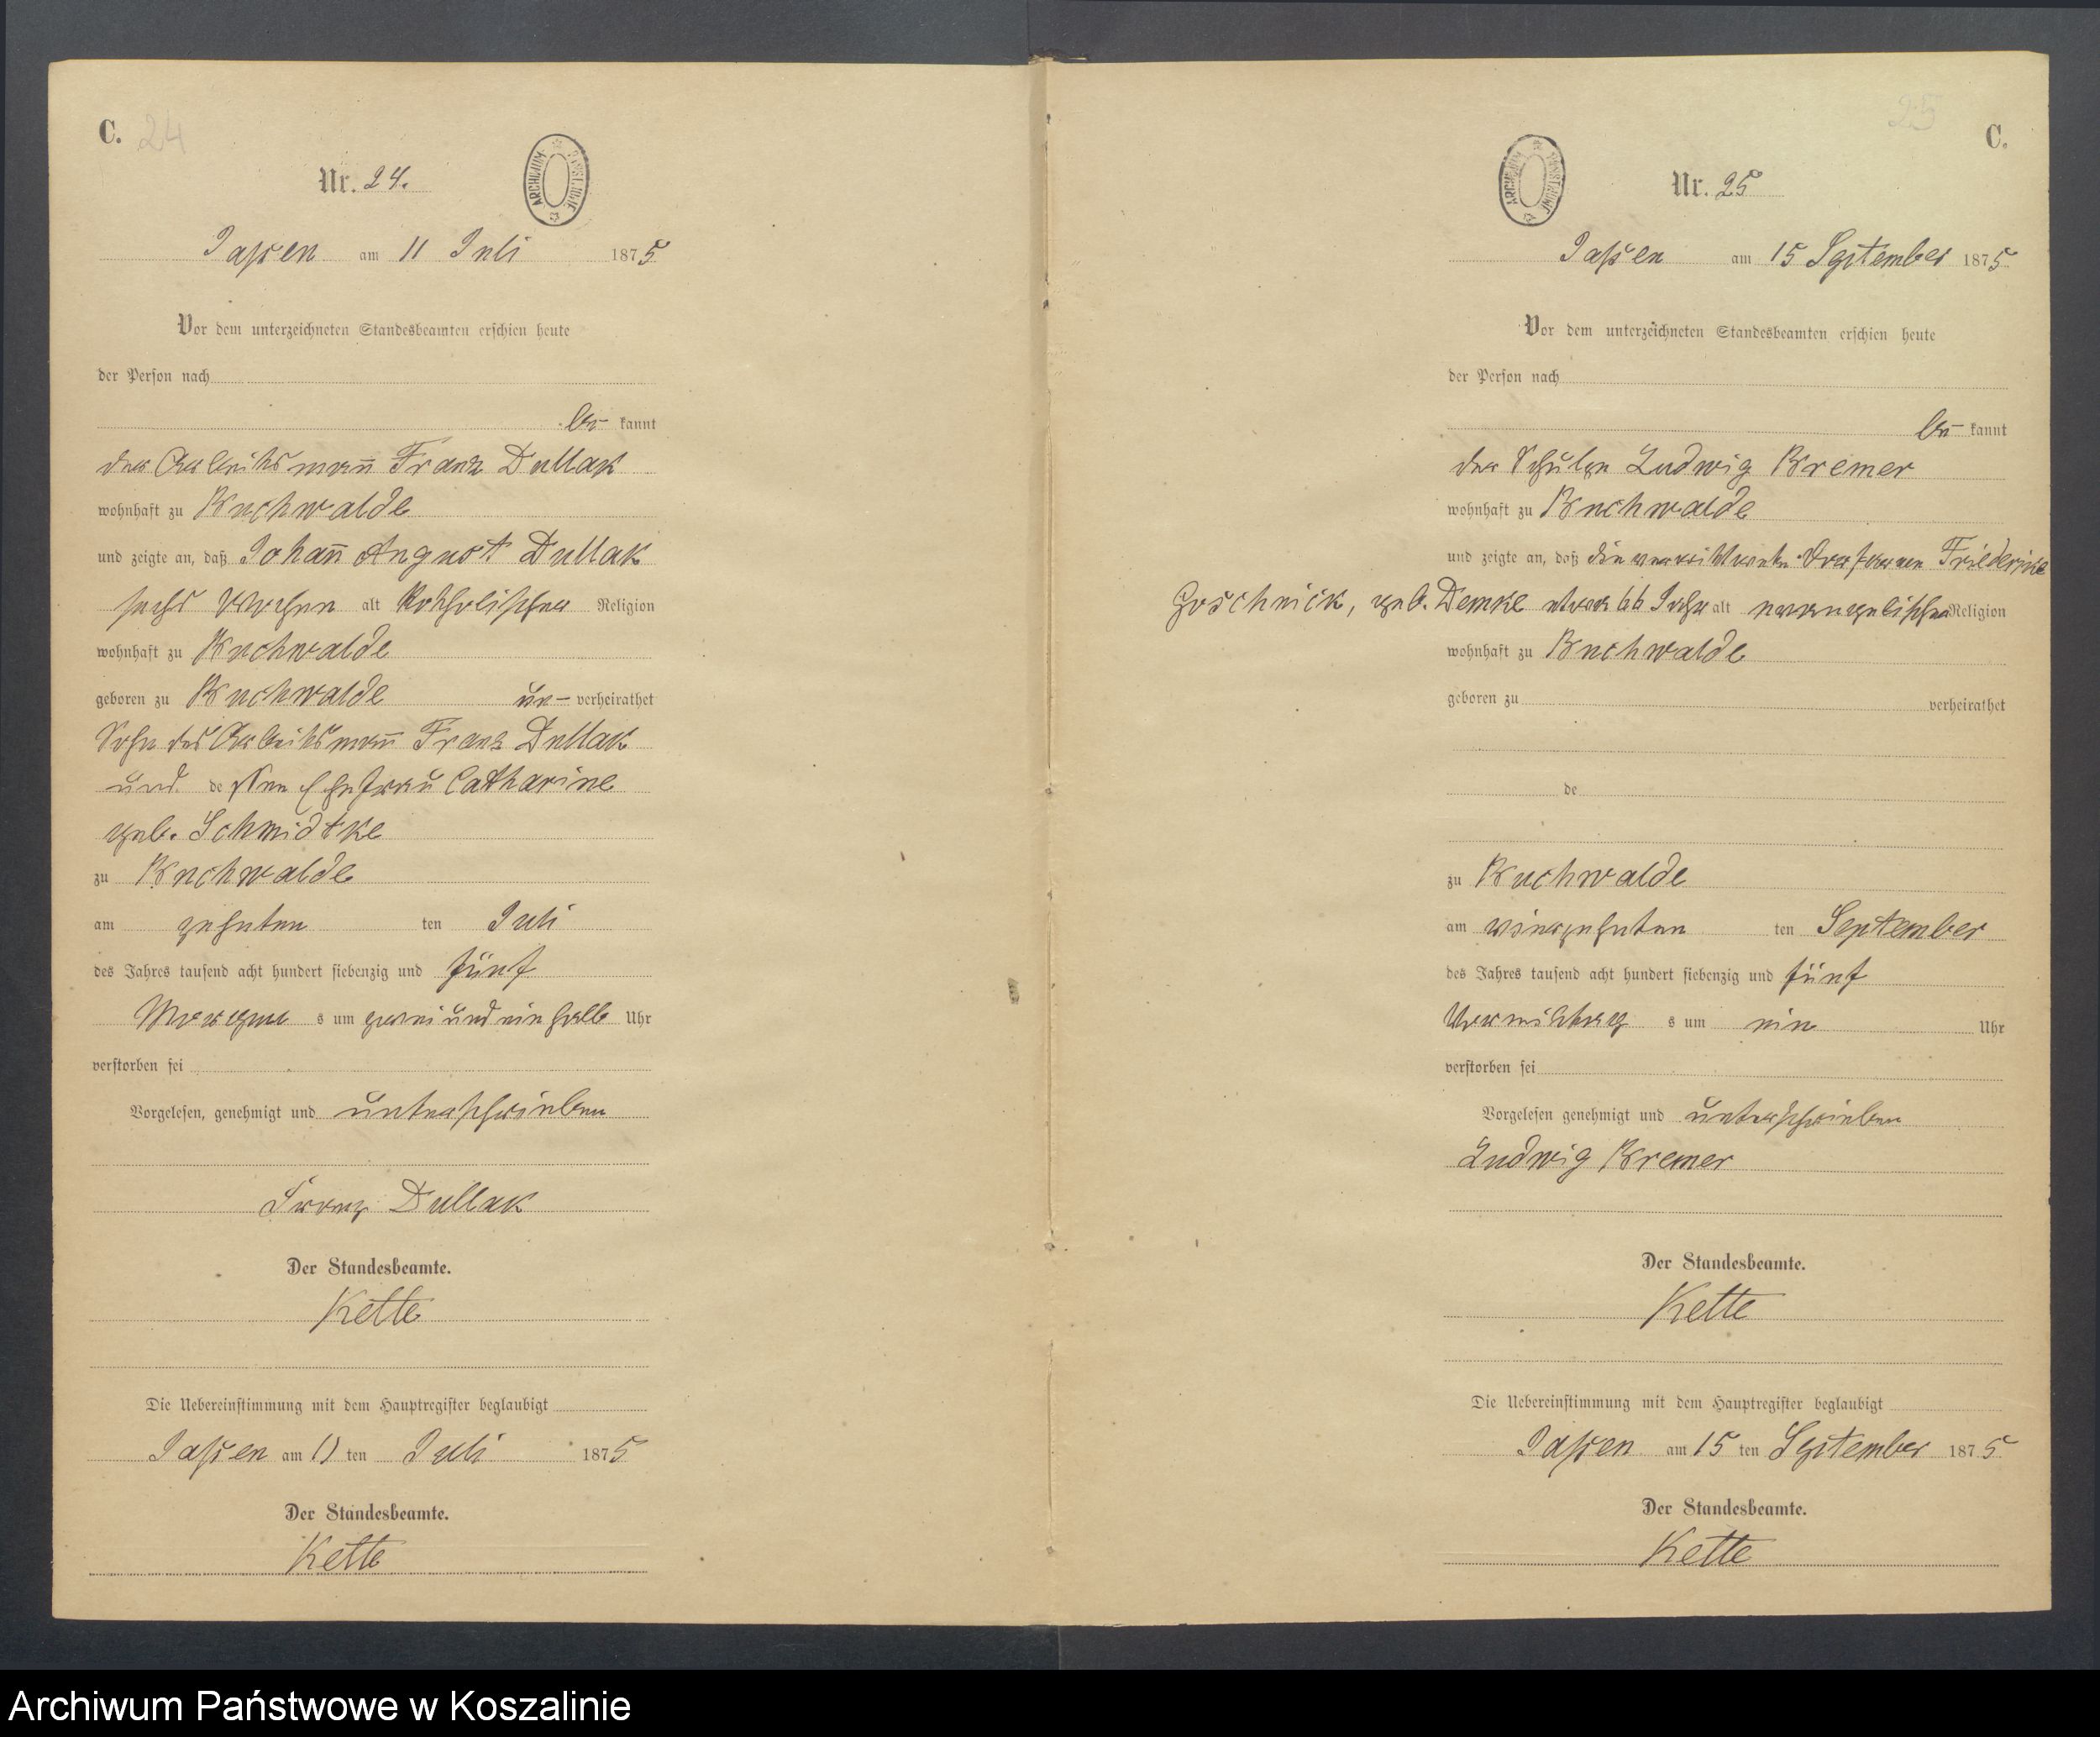 C. 24
Nr. 24.
ARCHIWUM PAŃSTWOWE
Jassen am 11 Juli 1875
Vor dem unterzeichneten Standesbeamten erschien heute
der Person nach
be- kannt
der Arbeitsmann Franz Dullak
wohnhaft zu Buchwalde
und zeigte an, daß Johann August Dullak
sechs Wochen alt katholischer Religion
wohnhaft zu Buchwalde
geboren zu Buchwalde un- verheirathet
Sohn des Arbeitsmann Franz Dullak
und dessen Ehefrau Catharine
geb. Schmidtke
zu Buchwalde
am zehnten ten Juli
des Jahres tausend acht hundert siebenzig und fünf
Morgens um zwei und ein halb Uhr
verstorben sei
Vorgelesen, genehmigt und unterschrieben
Franz Dullak
Der Standesbeamte.
Kette
Die Uebereinstimmung mit dem Hauptregister beglaubigt
Jassen am 11 ten Juli 1875
Der Standesbeamte.
Kette
25 C.
ARCHIWUM PAŃSTWOWE
Nr. 25
Jassen am 15 September 1875
Vor dem unterzeichneten Standesbeamten erschien heute
der Person nach
be- kannt
der Schulze Ludwig Bremer
wohnhaft zu Buchwalde
und zeigte an, daß die verwittwete Friederike
Goschnick, geb. Demke etwa 66 Jahr alt evangelischer Religion
wohnhaft zu Buchwalde
geboren zu verheirathet
de
zu Buchwalde
am vierzehnten ten September
des Jahres tausend acht hundert siebenzig und fünf
Vormittags um ein Uhr
verstorben sei
Vorgelesen genehmigt und unterschrieben
Ludwig Bremer
Der Standesbeamte.
Kette
Die Uebereinstimmung mit dem Hauptregister beglaubigt
Jassen am 15 ten September 1875
Der Standesbeamte.
Kette
Archiwum Państwowe w Koszalinie